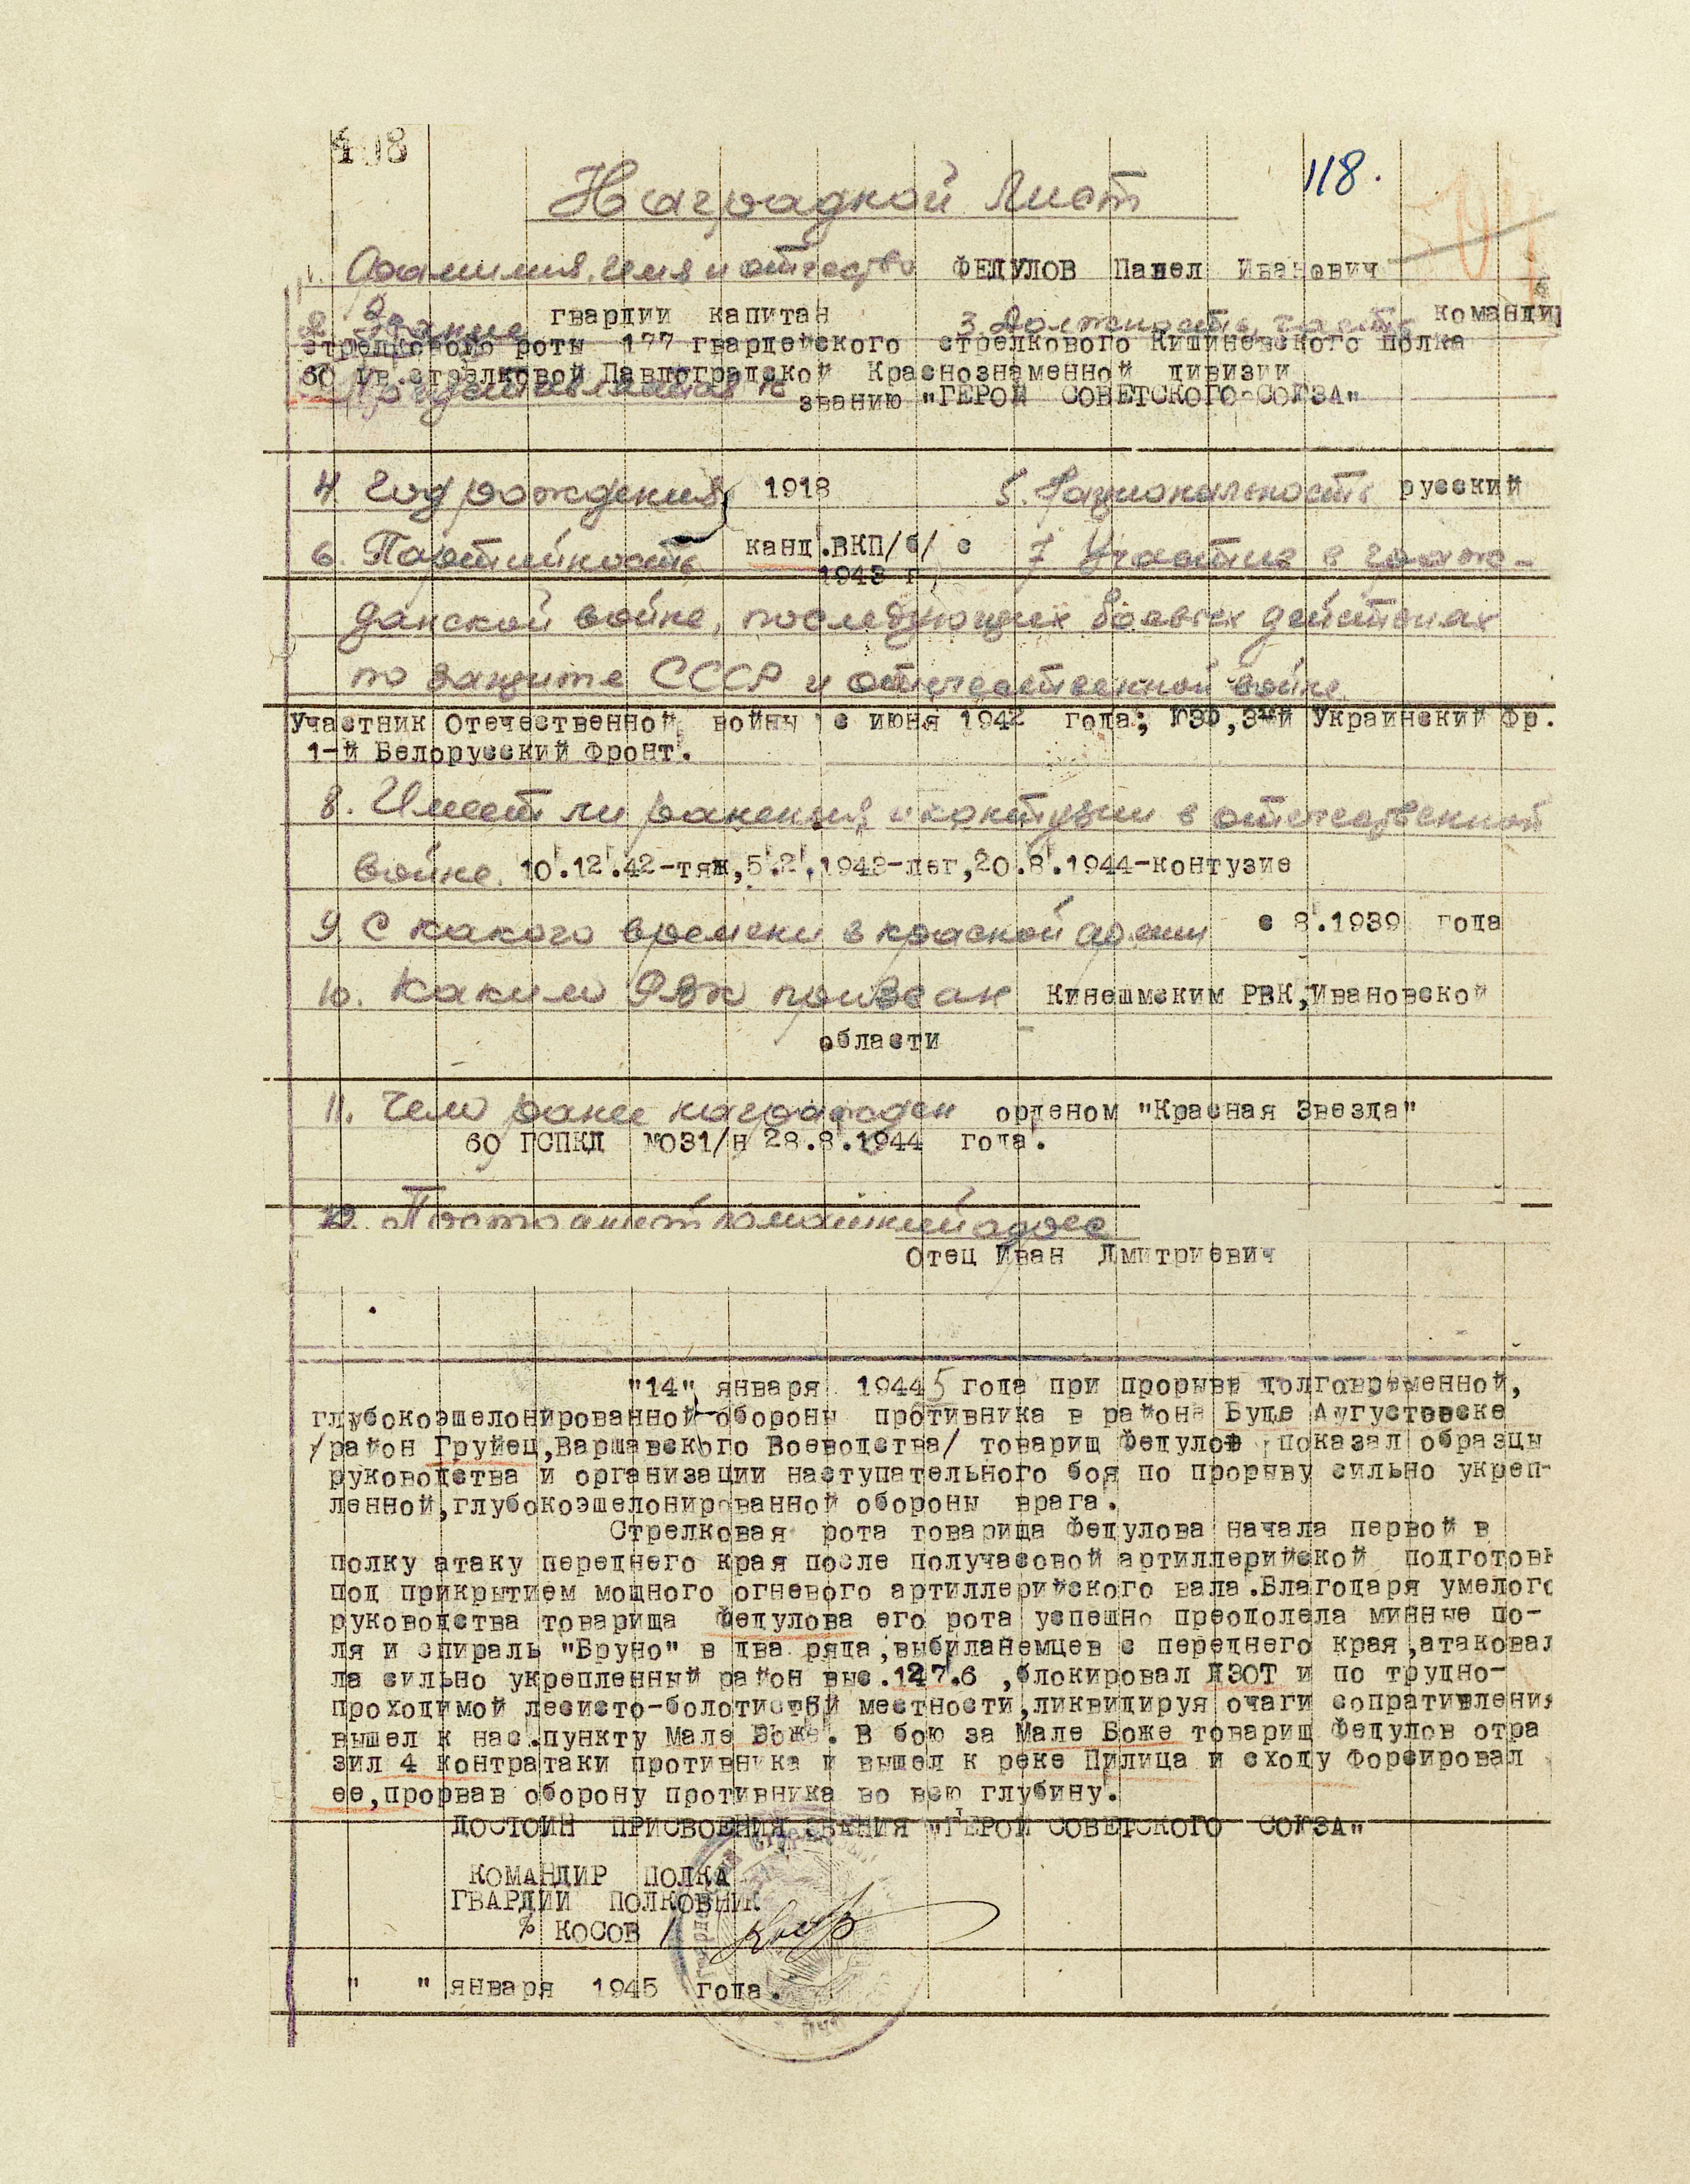 118.
Наградной лист
1. Фамилия, имя и отчество ФЕДУЛОВ Павел Иванович
2. Звание гвардии капитан 3. Должность, часть командир
стрелковой роты 177 гвардейского стрелкового Кишиневского полка
60 гв.стрелковой Павлоградской Краснознаменной дивизии
Представляется к званию "ГЕРОЙ СОВЕТСКОГО СОЮЗА"
4 Год рождения 1918 5. Национальность русский
6. Партийность канд.ВКП/б/ с 7 Участие в граж-
1943 г.
данской войне, последующих боевых действиях
по защите СССР и отечественной войне
Участник Отечественной войны с июня 1942 года; ЮЗФ,3-й Украинский Фр.
1-й Белорусский Фронт.
8. Имеет ли ранения и контузии в отечественной
войне. 10.12.42-тяж,5.2.1943-лег,20.8.1944-контузие
9. С какого времени в красной армии с 8.1939 года
10. Каким РВК призван Кинешмским РВК,Ивановской
области
11. Чем ранее награжден орденом "Красная Звезда"
60 ГСПКД №031/н 28.8.1944 года.
12. Постоянный домашний адрес
Отец Иван Дмитриевич
"14" января 19445 года при прорыве долговременной,
глубокоэшелонированной обороны противника в районе Буде Аугустовске
/район Груйец,Варшавского Воеводства/ товарищ Федулов показал образцы
руководства и организации наступательного боя по прорыву сильно укреп-
ленной,глубокоэшелонированной обороны врага.
Стрелковая рота товарища Федулова начала первой в
полку атаку переднего края после получасовой артиллерийской подготовк
под прикрытием мощного огневого артиллерийского вала.Благодаря умелого
руководства товарища Федулова его рота успешно преодолела минные по-
ля и спираль "Бруно" в два ряда,выбиланемцев с переднего края,атаковал
ла сильно укрепленный район выс.127.6 ,блокировал ДЗОТ и по трудно-
проходимой лесисто-болотистой местности,ликвидируя очаги сопративления
вышел к нас.пункту Мале Боже. В бою за Мале Боже товарищ Федулов отра
зил 4 контратаки противника и вышел к реке Пилица и сходу Форсировал
ее,прорвав оборону противника во всю глубину.
ДОСТОИН ПРИСВОЕНИЯ ЗВАНИЯ "ГЕРОЙ СОВЕТСКОГО СОЮЗА"
КОМАНДИР ПОЛКА
ГВАРДИИ ПОЛКОВНИК
/ КОСОВ /
" " января 1945 года.